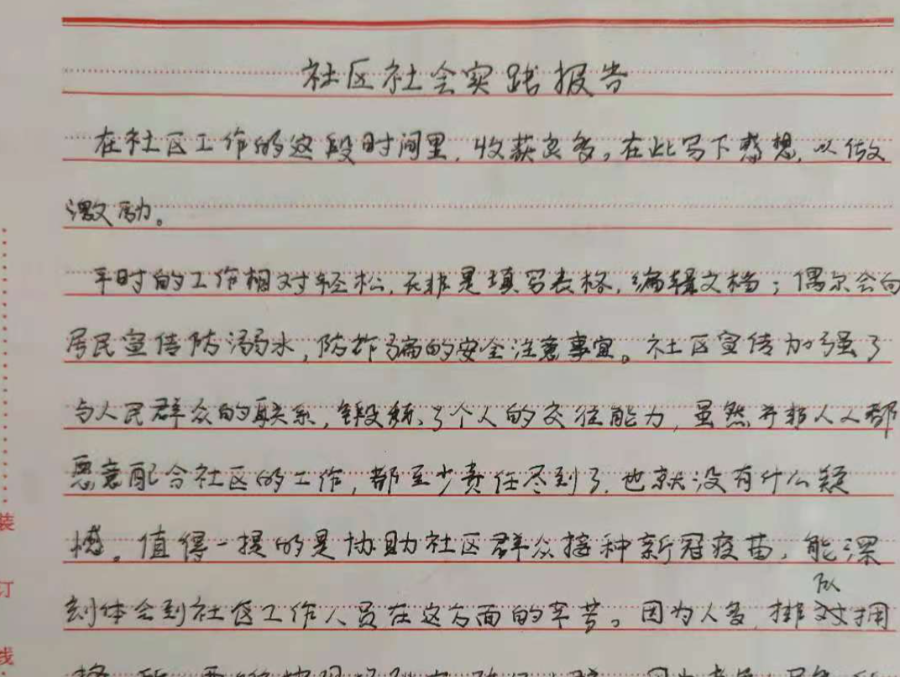 社区社会实践报告
在社区工作的这段时间里,收获良多。在此写下感想,以做
激励。
平时的工作相对轻松,无非是填写表格,编辑文档;偶尔会向
居民宣传防溺水,防诈骗的安全注意事宜。社区宣传加强了
与人民群众的联系,锻炼了个人的交往能力,虽然并非人人都
愿意配合社区的工作,都至少责任尽到了,也就没有什么疑
憾。值得一提的是协助社区群众接种新冠疫苗,能深
队
刻体会到社区工作人员在这方面的辛苦。因为人多,排对拥
装
订
线